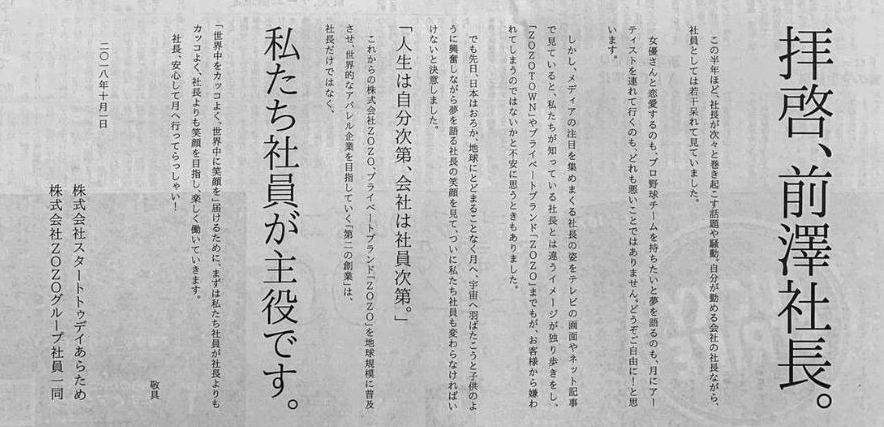 拝啓、前澤社長。
この半年ほど、社長が次々と巻き起こす話題や騒動。自分が勤める会社の社長ながら、
社員としては若干呆れて見ていました。
女優さんと恋愛するのも、プロ野球チームを持ちたいと夢を語るのも、月にアー
ティストを連れて行くのも、どれも悪いことではありません。どうぞご自由に!と思
います。
しかし、メディアの注目を集めまくる社長の姿をテレビの画面やネット記事
で見ていると、私たちが知っている社長とは違うイメージが独り歩きをし、
「ZOZOTOWN」やプライベートブランド「ZOZO」までもが、お客様から嫌わ
れてしまうのではないかと不安に思うときもありました。
でも先日、日本はおろか、地球にとどまることなく月へ、宇宙へ羽ばたこうと子供のよ
うに興奮しながら夢を語る社長の笑顔を見て、ついに私たち社員も変わらなければい
けないと決意しました。
「人生は自分次第、会社は社員次第。」
これからの株式会社ZOZO、プライベートブランド「ZOZO」を地球規模に普及
させ、世界的なアパレル企業を目指していく「第二の創業」は、
社長だけではなく、
私たち社員が主役です。
「世界中をカッコよく、世界中に笑顔を」届けるために、まずは私たち社員が社長よりも
カッコよく、社長よりも笑顔を目指し、楽しく働いていきます。
社長、安心して月へ行ってらっしゃい!
敬具
二〇一八年十月一日
株式会社スタートトゥデイあらため
株式会社ZOZOグループ社員一同